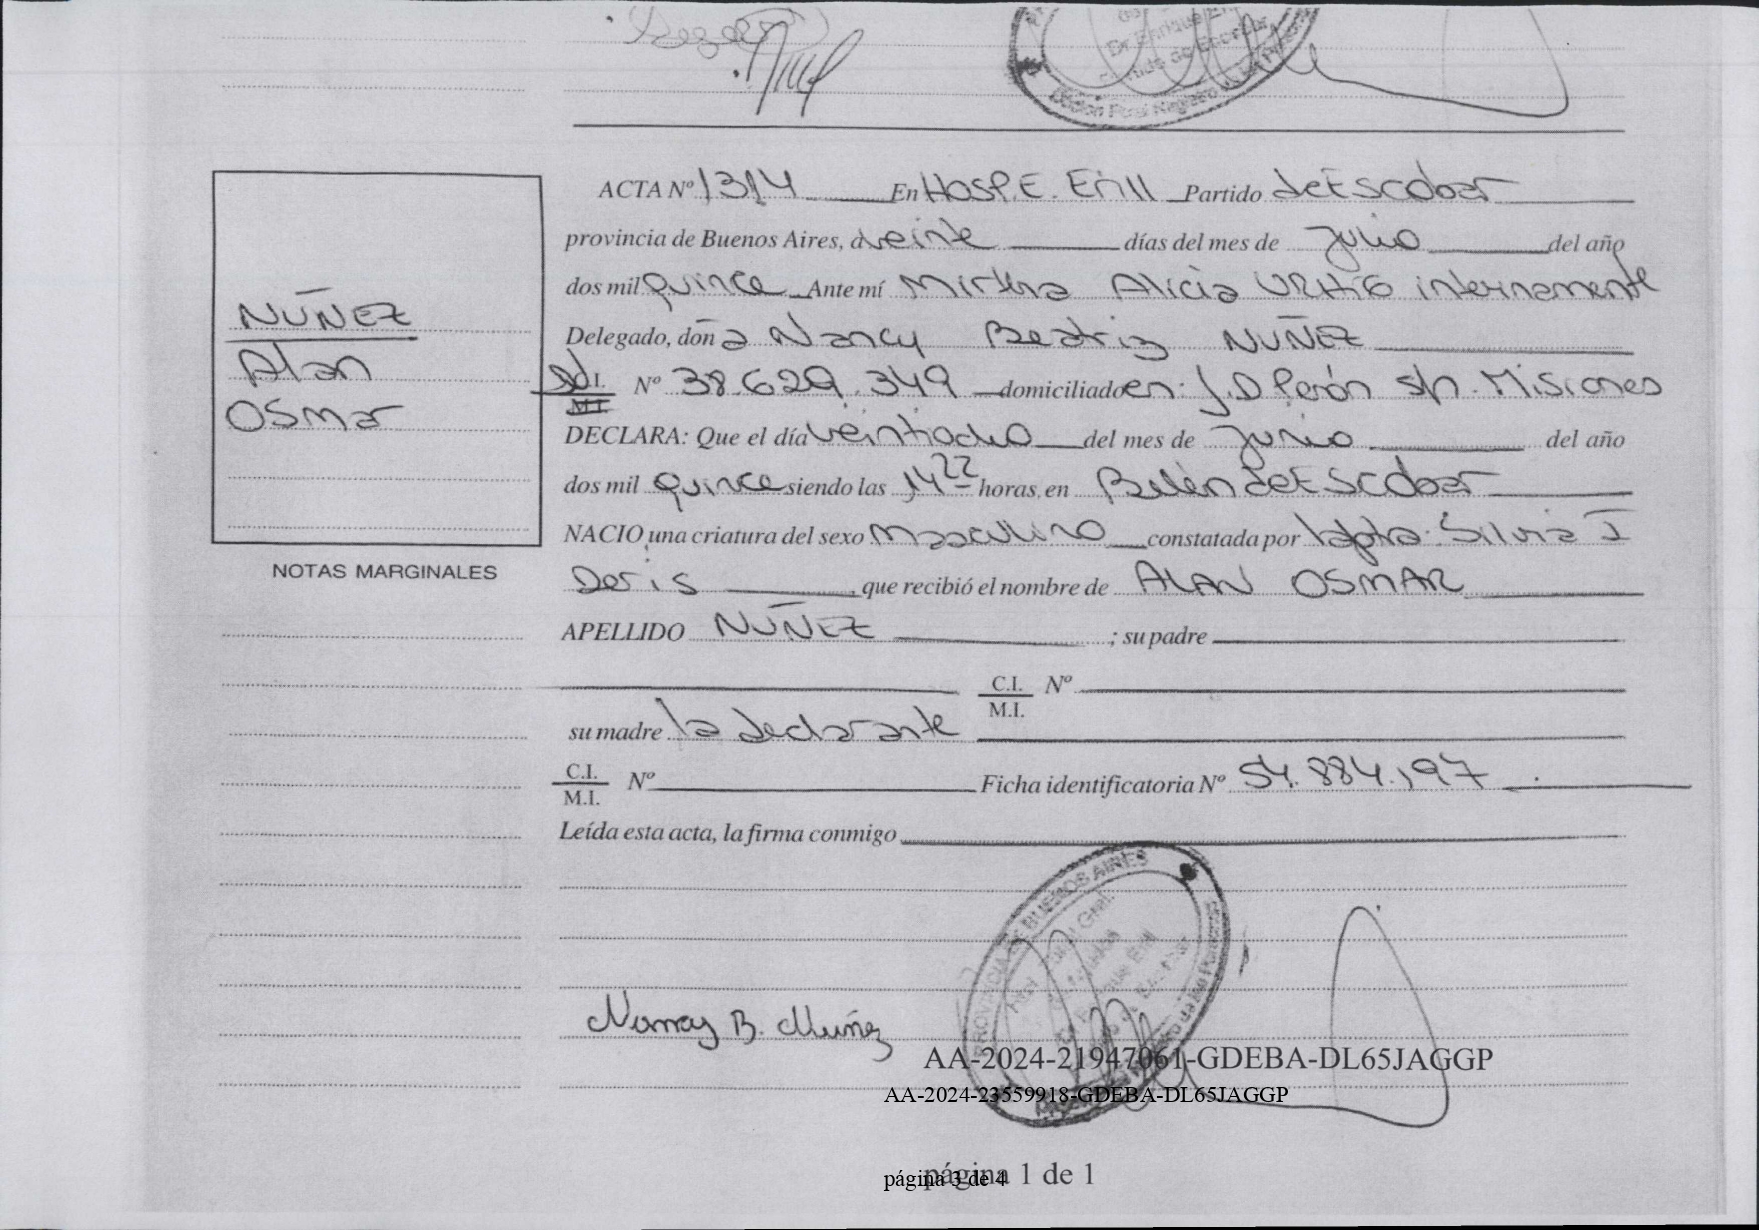 Dr Enrique Erill
de Escobar
ACTA Nº 1314 En Hosp. E. Erill Partido de Escobar
provincia de Buenos Aires, a veinte días del mes de Julio del año
dos mil quince Ante mí Mirtha Alicia internamente
NÚÑEZ
Delegado, doña Nancy Beatriz NUÑEZ
Alan
D.I. M.I. Nº 38.629.349 domiciliado en: J.D Perón s/n. Misiones
Osmar
DECLARA: Que el día veintiocho del mes de Junio del año
dos mil quince siendo las 14 22 horas, en Belén de Escobar
NACIO una criatura del sexo masculino constatada por la obstra: Silvia I
NOTAS MARGINALES
Deris, que recibió el nombre de ALAN OSMAR
APELLIDO NUÑEZ ; su padre
C.I. M.I. Nº
su madre la declarante
C.I. M.I. Nº Ficha identificatoria Nº 54.884.197
Leída esta acta, la firma conmigo
PROVINCIA DE BUENOS AIRES
Nancy B. Nuñez
AA-2024-21947061-GDEBA-DL65JAGGP
AA-2024-23559918-GDEBA-DL65JAGGP
página 1 de 1
página 3 de 4